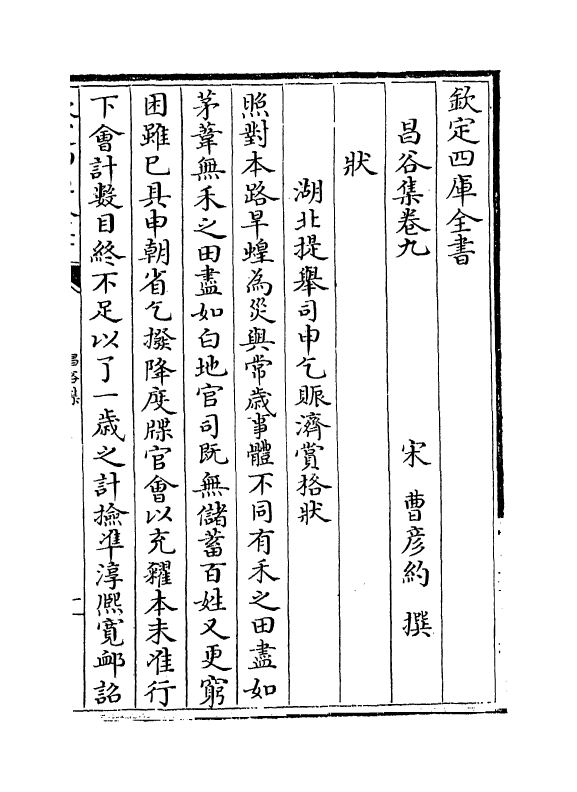 欽定四庫全書
昌谷集卷九
宋 曹彥約 撰
狀
湖北提舉司申乞賑濟賞格狀
照對本路旱蝗為災與常歲事體不同有禾之田盡如
茅葦無禾之田盡如白地官司既無儲蓄百姓又更窮
困雖已具申朝省乞撥降度牒官會以充糴本未准行
下會計數目終不足以了一歲之計撿准淳熈寛䘏詔
昌谷集